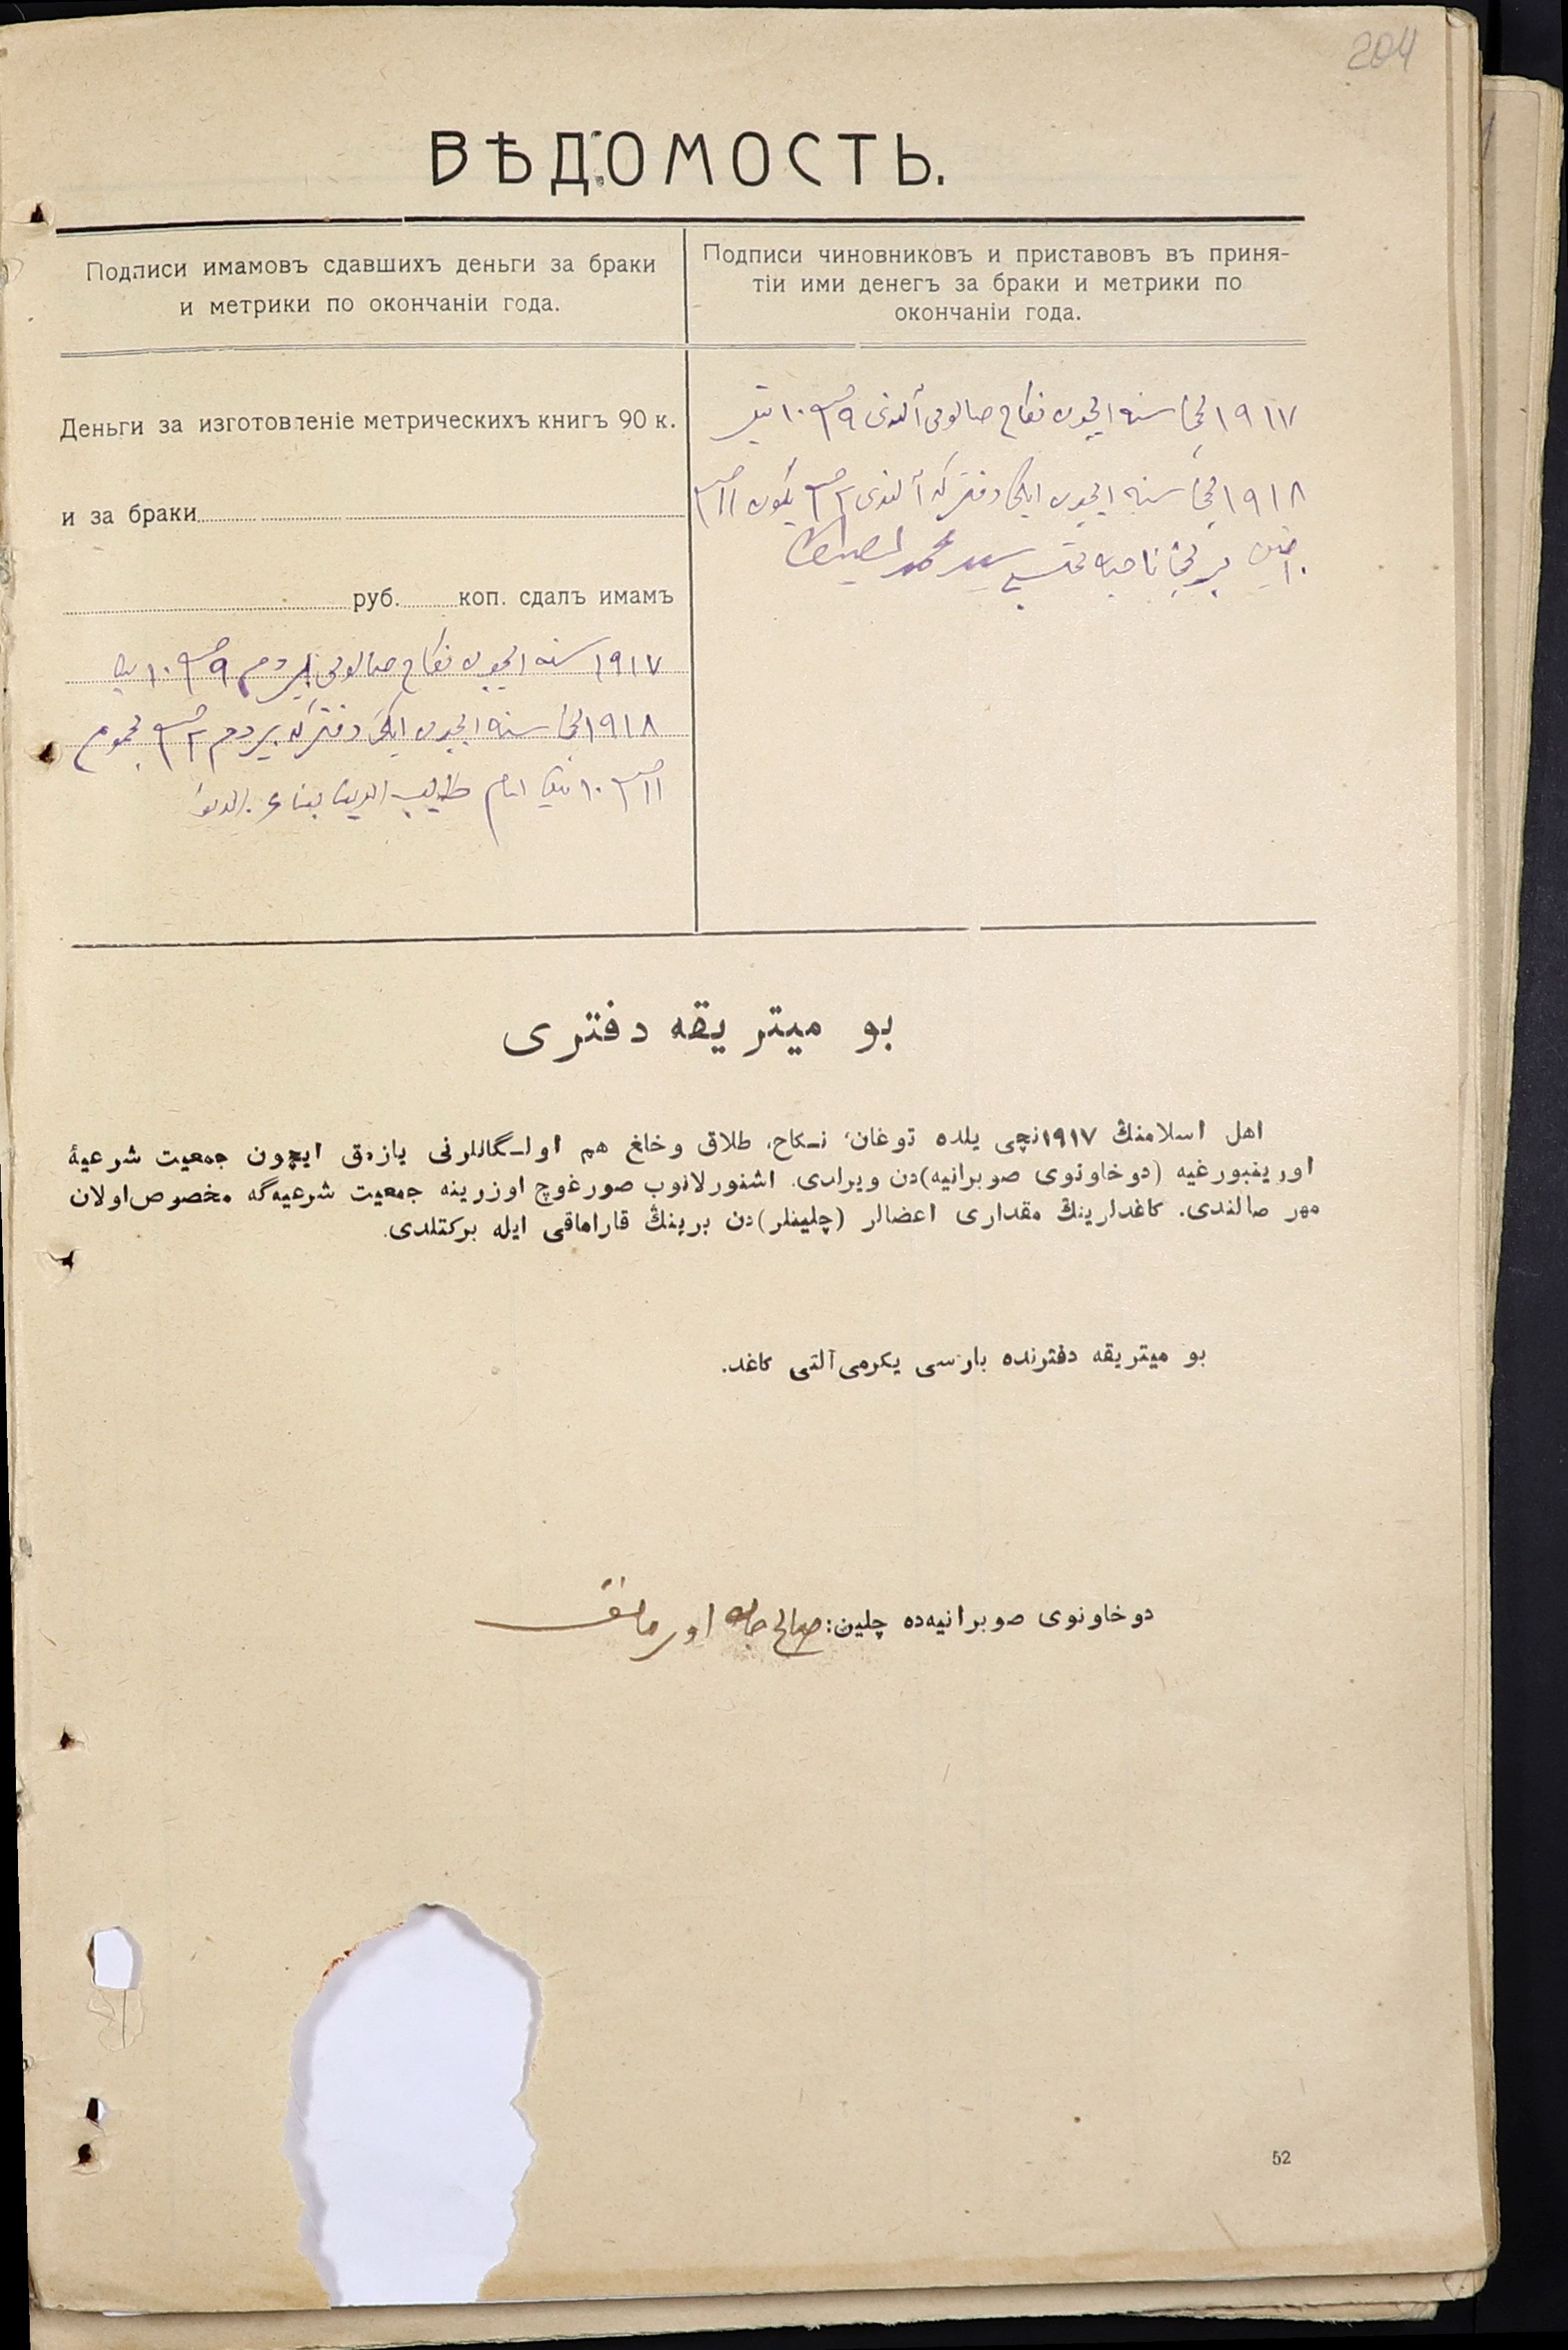 204
ВѢДОМОСТЬ.
Подписи имамовъ сдавшихъ деньги за браки
и метрики по окончаніи года.
Подписи чиновниковъ и приставовъ въ приня-
тіи ими денегъ за браки и метрики по
окончаніи года.
Деньги за изготовленіе метрическихъ книгъ 90 к.
и за браки
руб. коп. сдалъ имамъ
١٩١٧ سنه ایچون نکاح صالومی بیردم ٩
١٩١٨ نچی سنه ایچون ایکی دفترکه بیردم ٢
امام
١٩١٧ نچی سنه ایچون نکاح صالومی آلندی ٩
١٩١٨ نچی سنه ایچون ایکی دفترکه آلندی ٢
سید محمد
بو میتریقه دفتری
اهل اسلامنڭ ١٩١٧نچی یلده توغان، نـكاح، طلاق وخلغ هم اولـگانلرنی یازمق ایچون جمعیت شرعیهٔ
اورینبورغیه (دوخاونوی صوبرانیه)دن ویرلدی. اشنورلانوب صورغوچ اوزرینه جمعیت شرعیه‌گه مخصوص اولان
مهر صالندی. كاغدلرینڭ مقداری اعضالر (چلینلر)دن برینڭ قاراماقی ایله بركتلدی.
بو میتریقه دفترنده بارسی یكرمی آلتی كاغد.
دوخاونوی صوبرانیه‌ده چلین: صالح جان اورمانف
52